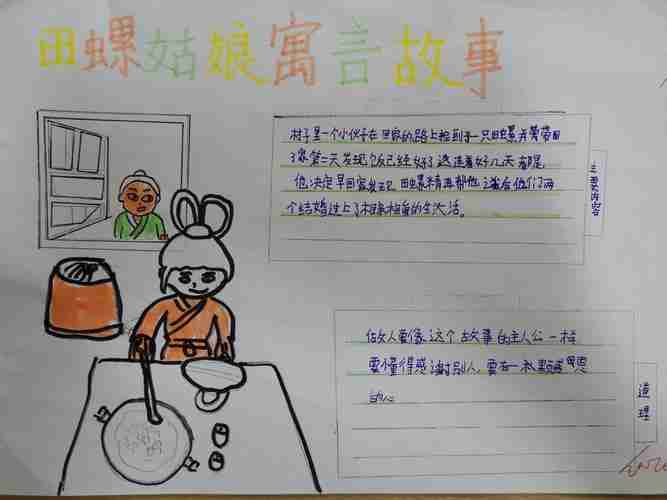 田螺姑娘寓言故事
村子里一个小伙子在回家的路上捡到了一只田螺并带回
了家第二天发现饭已经好了连着好几天都是
他决定早回家发现田螺精再帮他之后他们两
个结婚过上了相亲相爱的生活。
主要内容
做人要像这个故事的主人公一样
要懂得感谢别人,要有一颗感恩
的心
道理